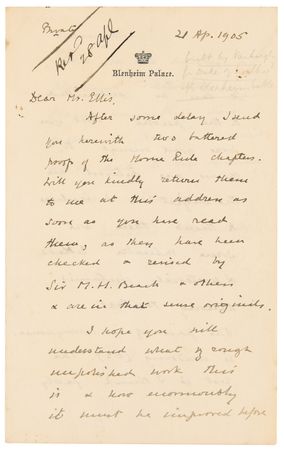 Private
21 Ap. 1905
Ret'd 28 Apl
Blenheim Palace.
built by Vanbrugh
for Duke of
Dear Mr. Ellis,
After some delay I send
you herewith two battered
proofs of the Home Rule chapters.
Will you kindly return them
to me at this address as
soon as you have read
them; as they have been
checked & revised by
Sir M. H. Beach & others
& are in that sense originals.
I hope you will
understand what rough
unpolished work this
is & how enormously
it must be improved before